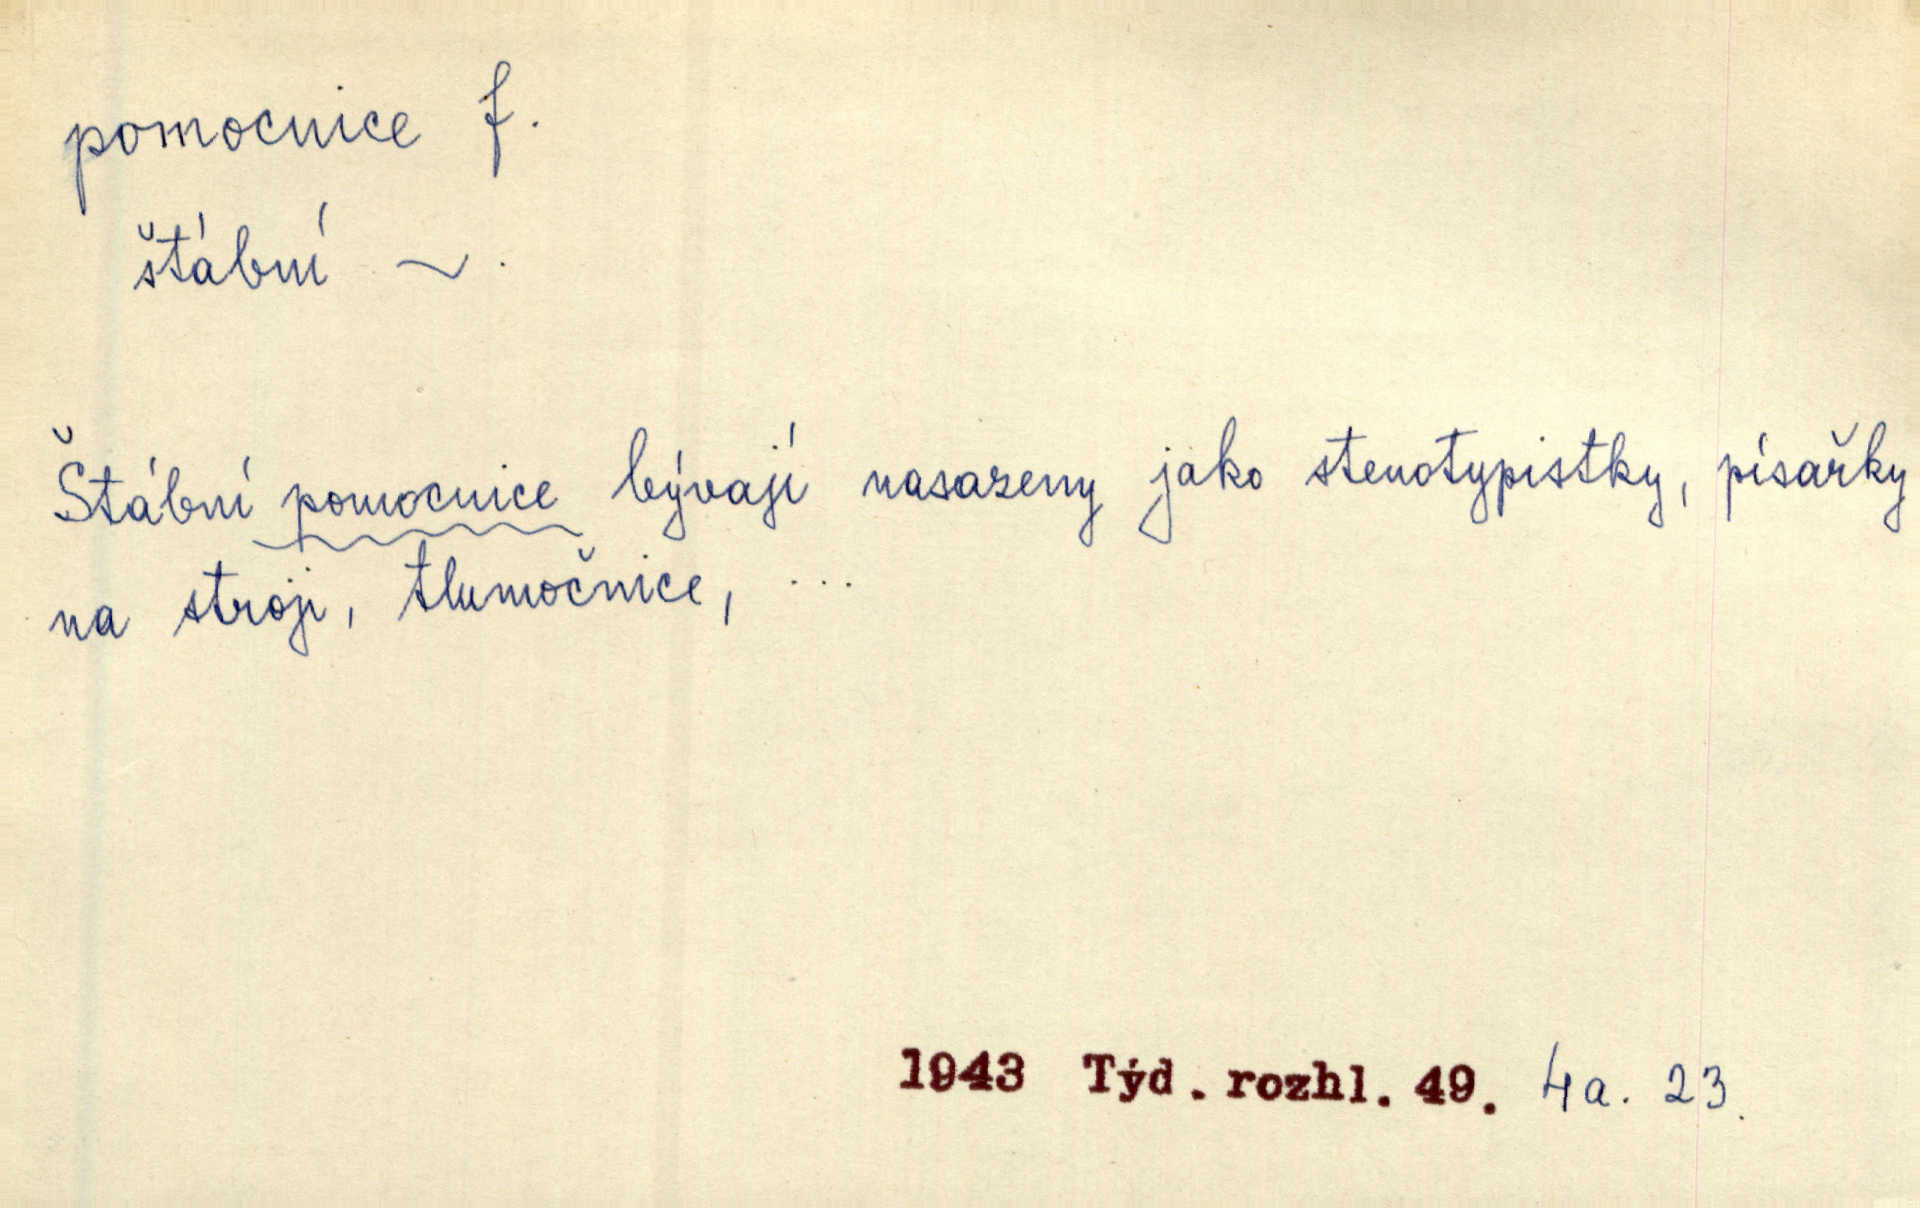 pomocnice f.
štábní ~.
Štábní pomocnice bývají nasazeny jako stenotypistky, písařky
na stroji, tlumočnice, ...
1943 Týd. rozhl. 49. 4a. 23.